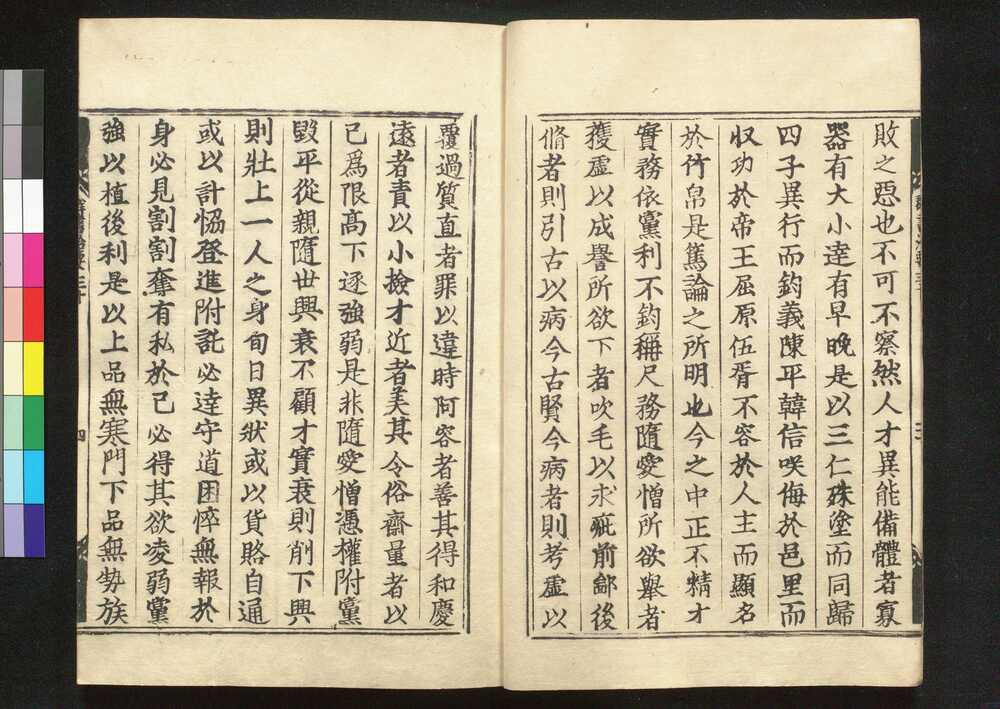 敗之惡也不可不察然人才異能備體者寡
器有大小達有早晚是以三仁殊塗而同歸
四子異行而鈞義陳平韓信咲侮於邑里而
収功於帝王屈原伍胥不容於人主而顯名
於竹帛是篤論之所明也今之中正不精才
實務依黨利不鈞稱尺務隨愛憎所欲舉者
獲虛以成譽所欲下者吹毛以求疵前鄙後
脩者則引古以病今古賢今病者則考虛以
覆過質直者罪以違時阿容者善其得和慶
遠者責以小撿才近者美其令俗齋量者以
已爲限高下逐強弱是非隨愛憎憑權附黨
毀平從親隨世興衰不顧才實衰則削下興
則壯上一人之身旬日異狀或以貨賂自通
或以計恊登進附託必逹守道困悴無報於
身必見割割奪有私於己必得其欲凌弱黨
強以植後利是以上品無寒門下品無勢族
群書治要三十
四